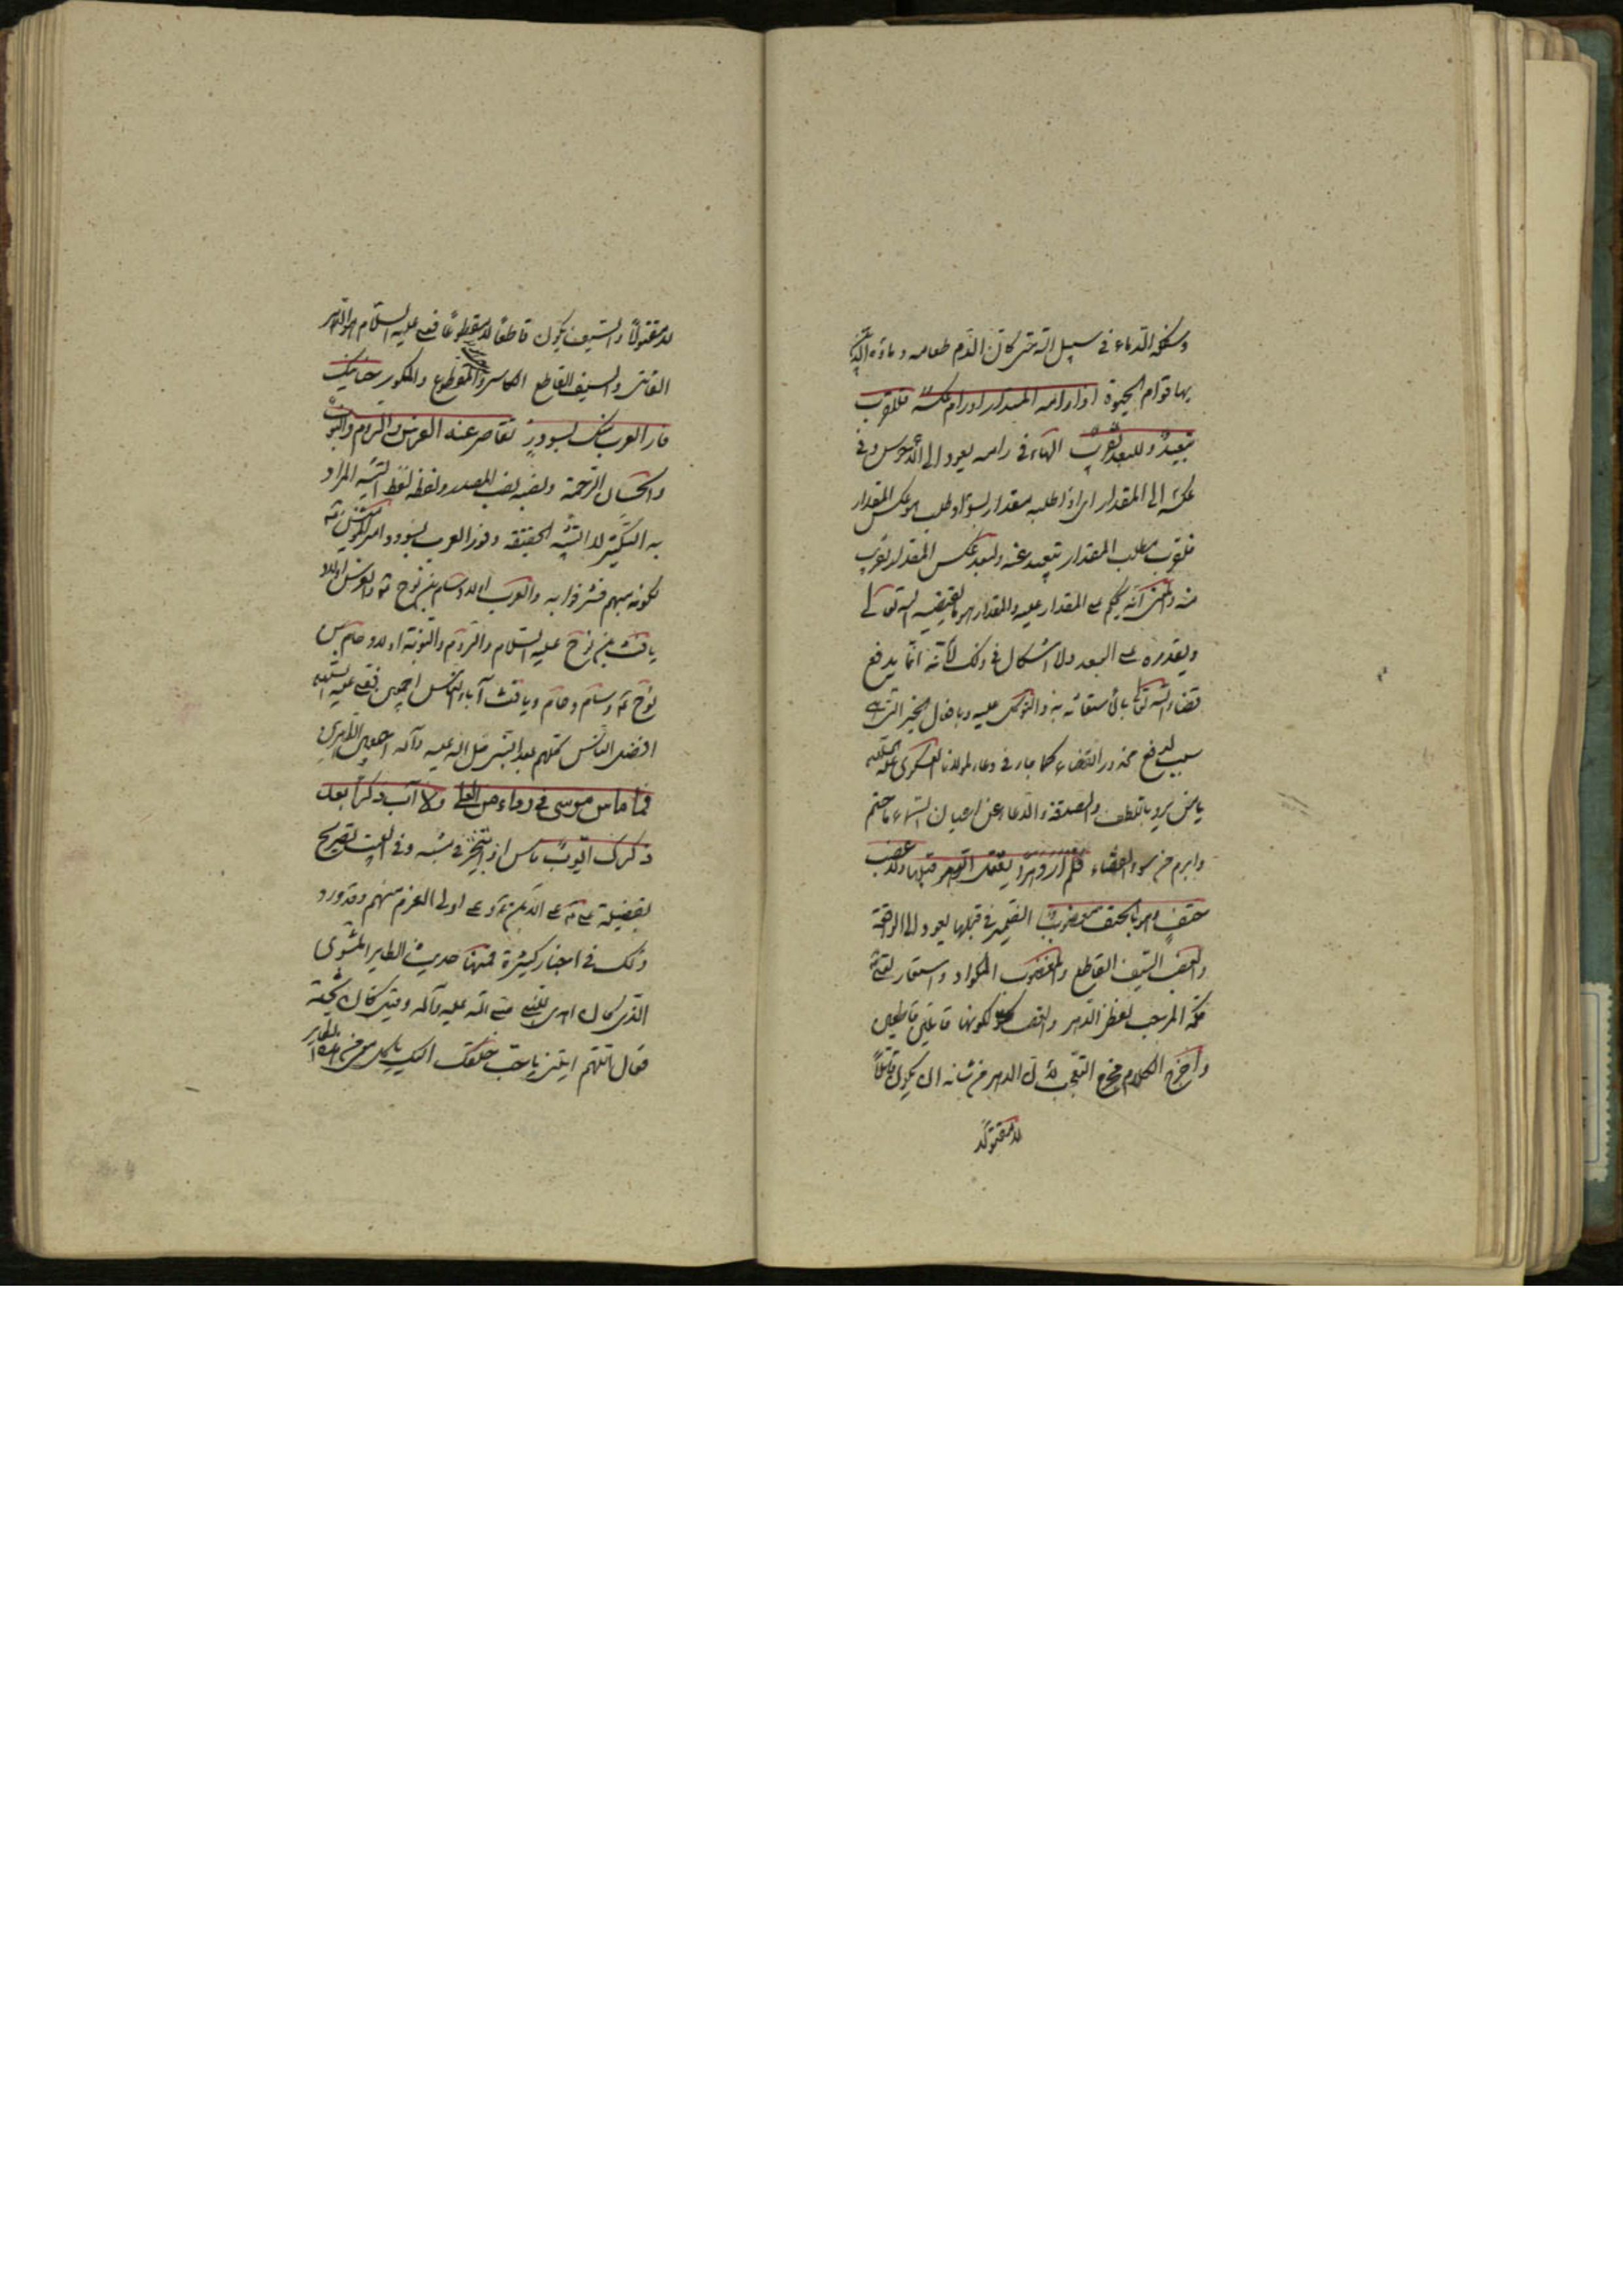 وسفكه الدماء في سبيل الله حتى كان الدم طعامه وماؤه الذي
بها قوام الحيوة اذا رامه المقدار او رام عكسه فللقرب
تبعيد وللبعد تقريب الهاء في رامه يعود الى وفي
عكسه الى المقدار اي اذا طلبه مقدار بسوء او طلب هو عكس المقدار
فلقرب مطلب المقدار تبعيد عنه ولبعد عكس المقدار تقريب
منه والمعنى انه يحكم على المقدار عليه والمقدار هو ما يقضيه الله تعالى
ويقدره على العبد ولا اشكال في ذلك لأنه انما يدفع
قضاء الله تعالى باستعانته به والتوكل عليه وبافعال الخير التي هي
سبب لدفع محذور القضاء كما جاء في دعاء لمولانا العسكري عليه السلام
يا من يرد باللطف والصدقة والدعاء عن اعنان السماء ما حتم
وابرم من سوء القضاء فلم ار دهرا يقتل الدهر قبلها ولا عضب
حتف وهو بالحتف معضوب الضمير في قبلها يعود الى الواقعة
والعضب السيف القاطع والمعضوب واستعار لقتله
مرحب لفظ الدهر والعضب لكونهما قاتلين قاطعين
واخرج الكلام مخرج التعجب لأن الدهر من شانه ان يكون قاتلا
لا مقتولا
لا مقتولا والسيف يكون قاطعا لا مقطوعا فهو عليه السلام الدهر
القاتل والسيف القاطع الكاسر والمقطوع والمكسور حنانيك
فاز العرب منك بسودد تقاصر عنه الفرس والروم والنوب
والحنان الرحمة ونصبه نصب المصدر ولفظه لفظ التثنية المراد
به التكثير لا التثنية الحقيقة وفوز العرب بسودد امير المؤمنين ع
لكونه منهم فشرفوا به والعرب اولاد سام بن نوح ع والفرس اولاد
يافث بن نوح عليه السلام والروم والنوبة اولاد حام بن
نوح ع وسام وحام ويافث آباء الناس اجمعين فهو عليه السلام
افضل الناس كلهم بعد النبي صلى الله عليه وآله اجمعين
فما ماس موسى في رداء من العلى ولا آب ذكرا بعد
ذكرك ايوب ماس اذا تبختر في مشيه وفي البيت تصريح
بفضيلته ع على الذين ع وعلى اولي العزم منهم وقد ورد
ذلك في اخبار كثيرة فمنها حديث الطاير المشوي
الذي كان اهدي للنبي صلى الله عليه وآله وقيل كان
فقال اللهم ايتني باحب خلقك اليك ياكل معي من هذا الطاير